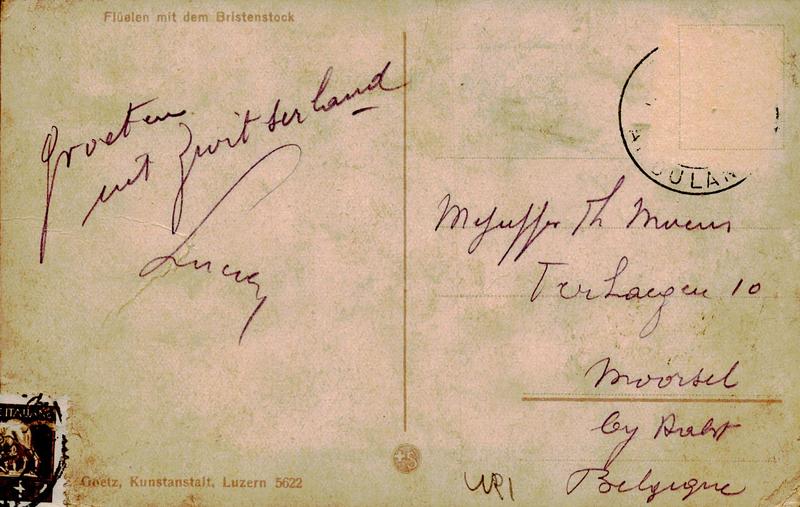 Flüelen mit dem Bristenstock
Groeten
uit Zwitserland
Lucy
AMBULAN
Mejuffer Th Moens
Terlaegen 10
Moorsel
by Aalst
Belgique
ITALIANE
Goetz, Kunstanstalt, Luzern 5622